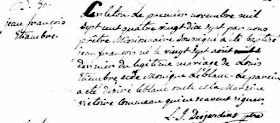 B. 30.
jean françois
Chambre.
Carleton Le premier novembre mil
sept cent quatre vingt dix sept par nous
prêtre Missionnaire soussigné a été baptisé
jean françois né le vingt sept août
dernier du legitime mariage de Louis
Chambre et de Monique Leblanc le parrein
a été desiré leblanc oncle et la maraine
victoire Commeau qui ne savent signer
L. J. Desjardins ptre